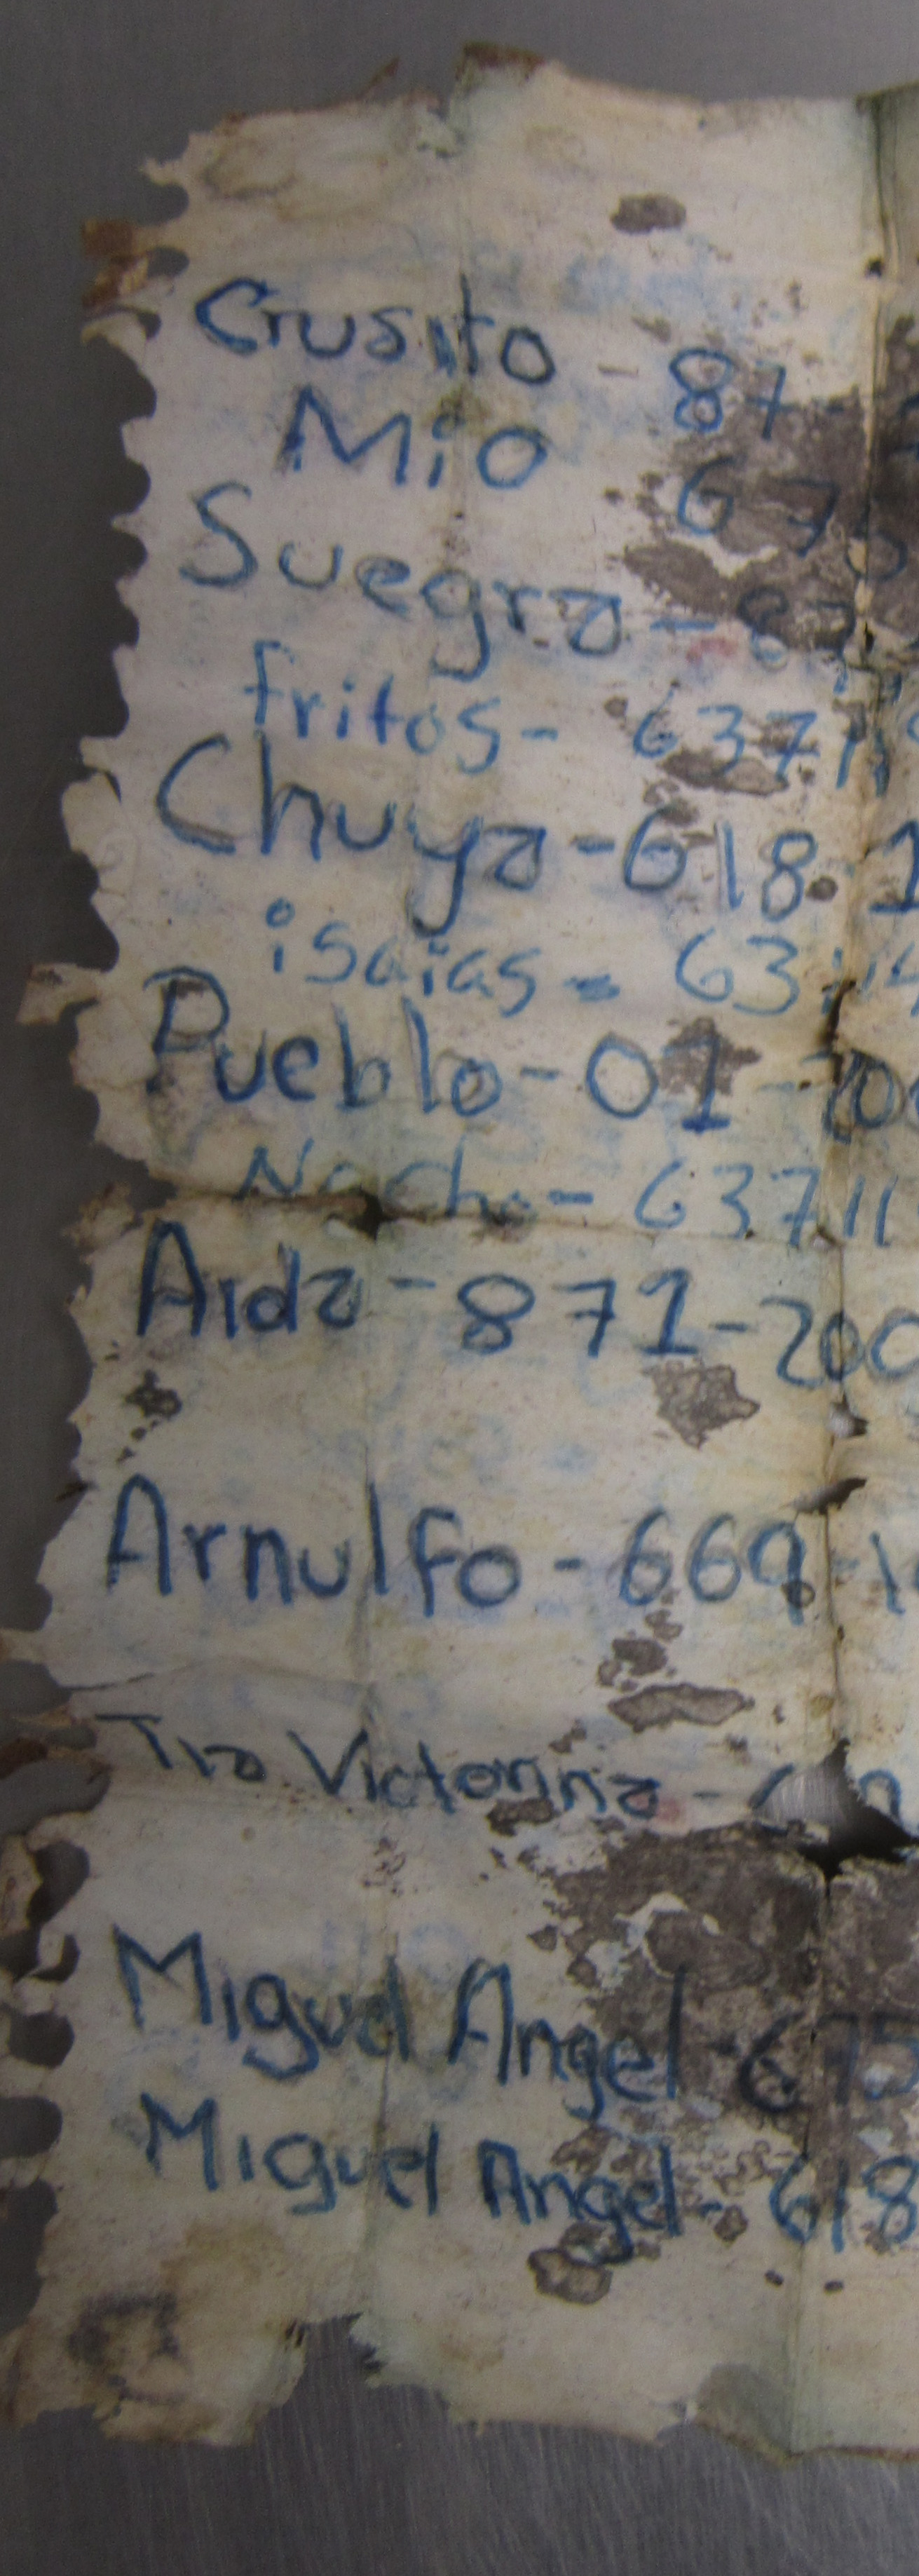 Crusito - 87-
Mio 67
Suegra -
fritos- 637 11
Chuya-618 1
isaias - 63
Pueblo-01-200
Nacho- 63711
Aida-871-200
Arnulfo-669-1
Tia Victorina -
Miguel Angel-675
Miguel Angel- 618